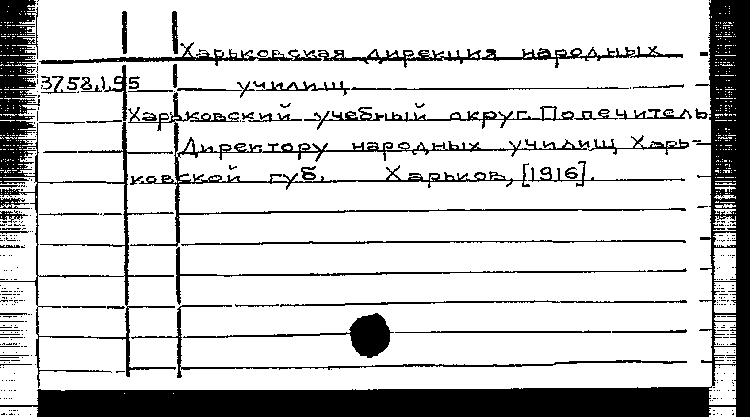 Харьковская дирекция народных
3758.1.95 училищ.
Харьковский учебный округ. Попечитель.
Директору народных училищ Харь-
ковской губ. Харьков, [1916].